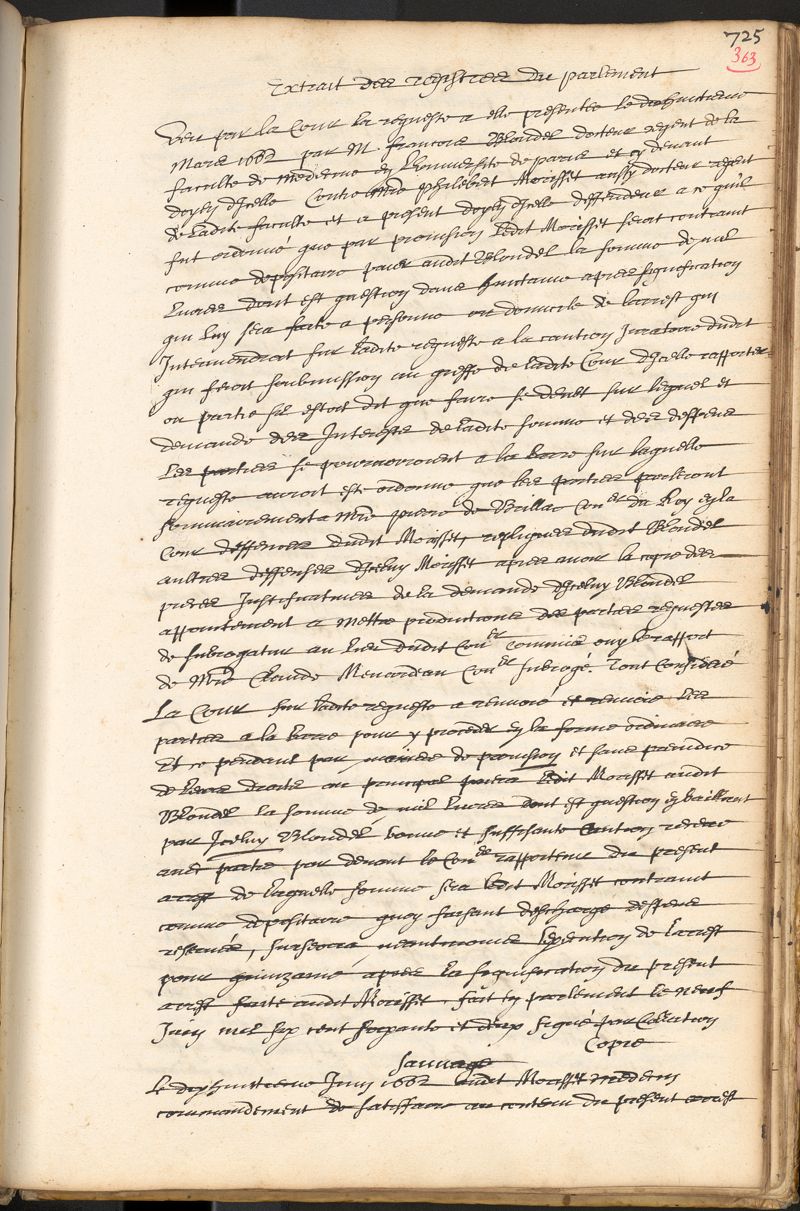 725
363
Extrait des registres du parlement
Veu par la Cour la requeste a elle presentée le dixhuictiesme
Mars 1662 par M. francois Blondel docteur regent de la
faculté de medecine en l'Université de paris et cy devant
doyen d'icelle Contre Mre philebert Morisset aussy docteur regent
de ladite faculté et a present doyen d'icelle deffendeur a ce qu'il
fut ordonné que par provision ledit Morisset seroit contraint
comme depositaire paier audit Blondel la somme de mil
livres dont est question dans huictaine apres signification
qui luy sera faite a personne ou domicile de larrest qui
Interviendroit sur ladite requeste a la caution Juratoire dudit
qui feroit soubmission au greffe de ladite Cour d'icelle rapporter
ou partie sil estoit dit que faire se deubt sur lequel et
demande des Interests de ladite somme et des despens
Les parties se pourvoiroient a la barre sur laquelle
requeste auroit esté ordonné que les parties parleront
sommairement a Mre pierre de Brillac Coner du Roy en la
Cour deffences dudit Morisset, repliques dudit Blondel
aultres deffenses d'iceluy Morisset apres avoir la copie des
pieces Justificatives de la demande d'iceluy Blondel
appointement a mettre productions des parties requestes
de subrogatur au lieu dudit Coner commis ouy le rapport
de Mre Claude Menardeau Coner subrogé. Tout Consideré
La Cour sur ladite requeste a renvoié et renvoie les
parties a la barre pour y proceder en la forme ordinaire
Et ce pendant par maniere de provision et sans preiudice
de leurs droits au principal paiera ledit Morisset audit
Blondel la somme de mil livres dont est question en baillant
par Iceluy Blondel bonne et suffisante caution receue
avec partie par devant le Coner rapporteur du present
arrest de laquelle somme sera ledit Morisset contraint
comme depositaire quoy faisant deschargé despens
reservés, surseoira neantmoins lexecution de larrest
pour quinzaine apres la signification du present
arrest faite audit Morisset. fait en parlement le neuf
Juin mil six cent soixante et deux signé par Collation
Copie
Sauvage
Le dixhuitiesme Juin 1662 audit Morisset medecin
commandement de satisfaire au contenu du present arrest